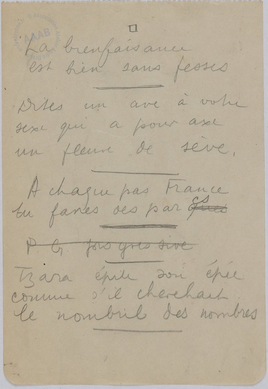 La bienfaisance
est bien sans fesses
Dites un ave à votre
sexe qui a pour axe
un fleuve de sève.
A chaque pas France
tu fanes des par
Tzara épile son épée
comme s'il cherchait
le nombril des nombres